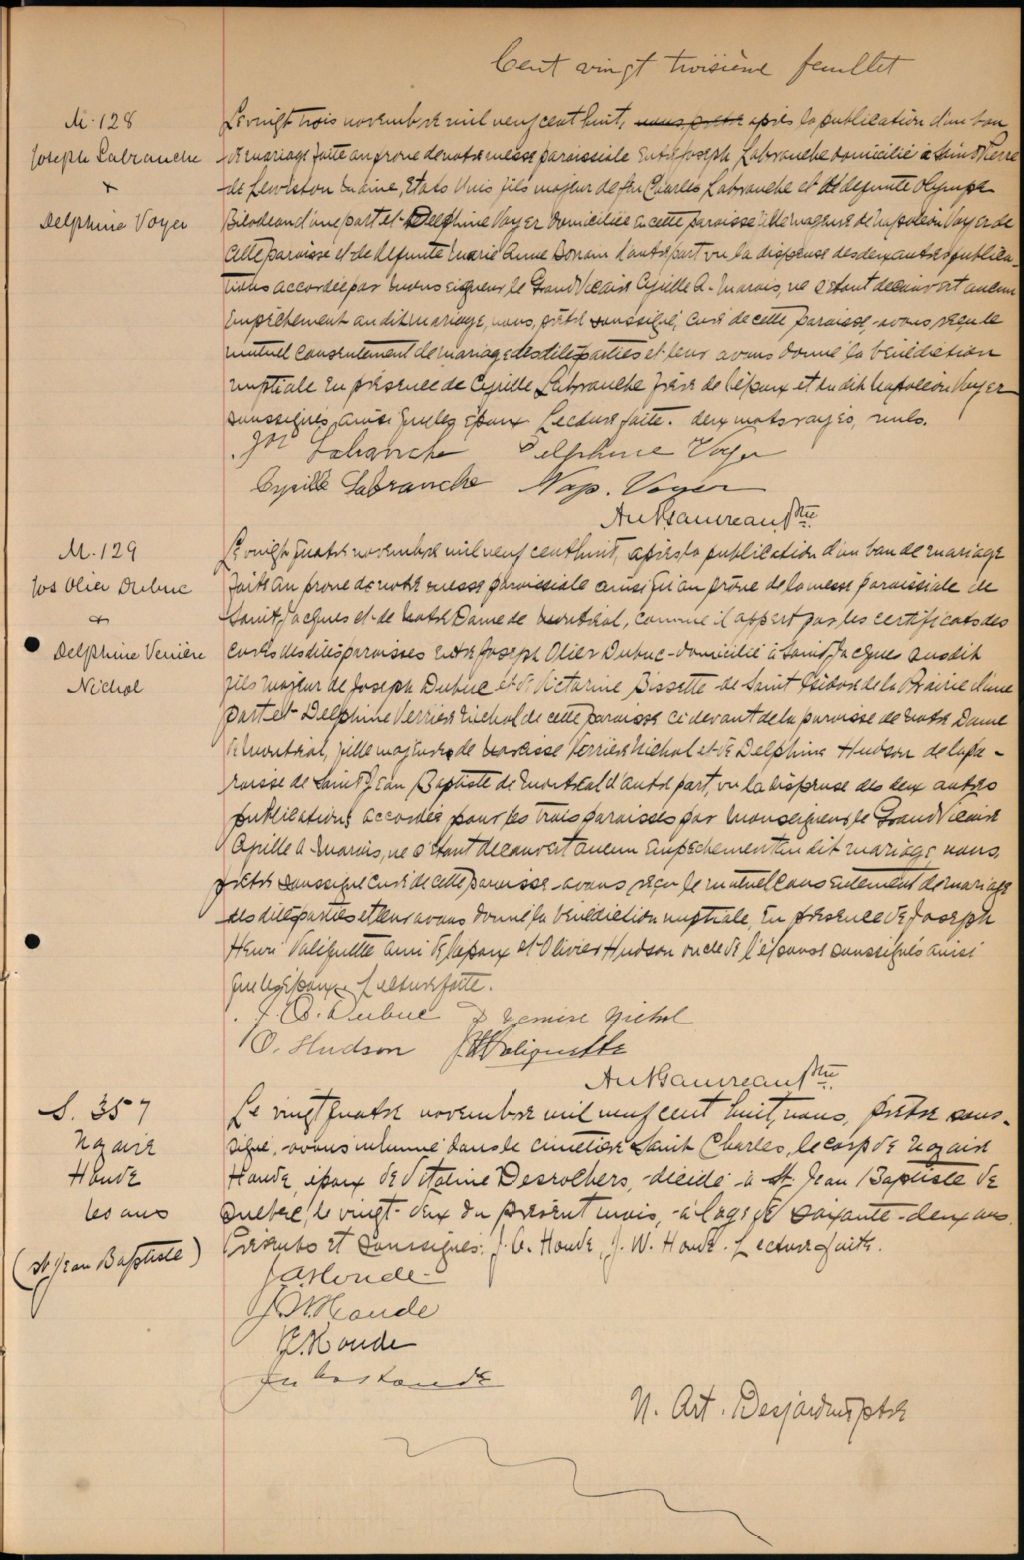 Cent vingt troisième feuillet
M. 128
Joseph Labranche
+
Delphine Voyer
Le vingt trois novembre mil neuf cent huit, nous prêtre après la publication d'un ban
de mariage faite au prone de notre messe paroissiale entre Joseph Labranche domicilié à Saint Pierre
de Lewiston Maine, Etats Unis fils majeur de feu Charles Labranche et de defunte Olympe
Bilodeau d'une part et Delphine Voyer domiciliée en cette paroisse fille majeure de Napoléon Voyer de
cette paroisse et de defunte Marie Anne d'autre part vu la dispense des deux autres publica-
tions accordée par Monseigneur le Grand Vicaire Cyrille A. Marois, ne s'etant decouvert aucun
empêchement au dit mariage, nous, prêtre soussigné, curé de cette paroisse, avons reçu le
mutuel consentement de mariage des dites parties et leur avons donné la bénédiction
nuptiale en présence de Cyrille Labranche frère de l'époux et du dit Napoléon Voyer
soussignés ainsi que les époux Lecture faite. deux mots rayés, nuls.
Jos Labranche Delphine Voyer
Cyrille Labranche Nap. Voyer
Ant Gauvreau Ptre
M. 129
Jos Olier Dubuc
+
Delphine Verrière
Nichol
Le vingt quatre novembre mil neuf cent huit, après la publication d'un ban de mariage
faite au prone de notre messe paroissiale ainsi qu'au prône de la messe paroissiale de
Saint Jacques et de Notre Dame de Montréal, comme il appert par les certificats des
curés des dites paroisses entre Joseph Olier Dubuc domicilié à Saint Jacques susdit
fils majeur de Joseph Dubuc et de Victorine Bissette de Saint Isidore de la Prairie d'une
part et Delphine Verrier Nichol de cette paroisse ci devant de la paroisse de Notre Dame
de Montréal, fille majeure de Narcisse Verrier Nichol et de Delphine Hudson de la pa-
roisse de Saint Jean Baptiste de Montréal d'autre part, vu la dispense des deux autres
publications accordée pour les trois paroisses par Monseigneur le Grand Vicaire
Cyrille A Marois, ne s'etant decouvert aucun empêchement au dit mariage, nous,
prêtre soussigné curé de cette paroisse avons reçu le mutuel consentement de mariage
des dites parties et leur avons donné la bénédiction nuptiale, en présence de Joseph
Henri Valiquette ami de l'époux et Olivier Hudson oncle de l'épouse soussignés ainsi
que les époux. Lecture faite.
J. O. Dubuc D Verrière Nichol
O. Hudson JH Valiquette
Ant Gauvreau Ptre
S. 357
Nazaire
Houde
62 ans
(St Jean Baptiste)
Le vingt quatre novembre mil neuf cent huit, nous, prêtre sous-
signé, avons inhumé dans le cimetière Saint Charles, le corps de Nazaire
Houde, époux de Vitaline Desrochers, décédé à St Jean Baptiste de
Québec, le vingt-deux du présent mois, à l'age de soixante-deux ans.
Présents et soussignés: J. A. Houde, J. W. Houde. Lecture faite.
J A Houde
J. W. Houde
E. Houde
Houde
N. Art. Desjardins ptre